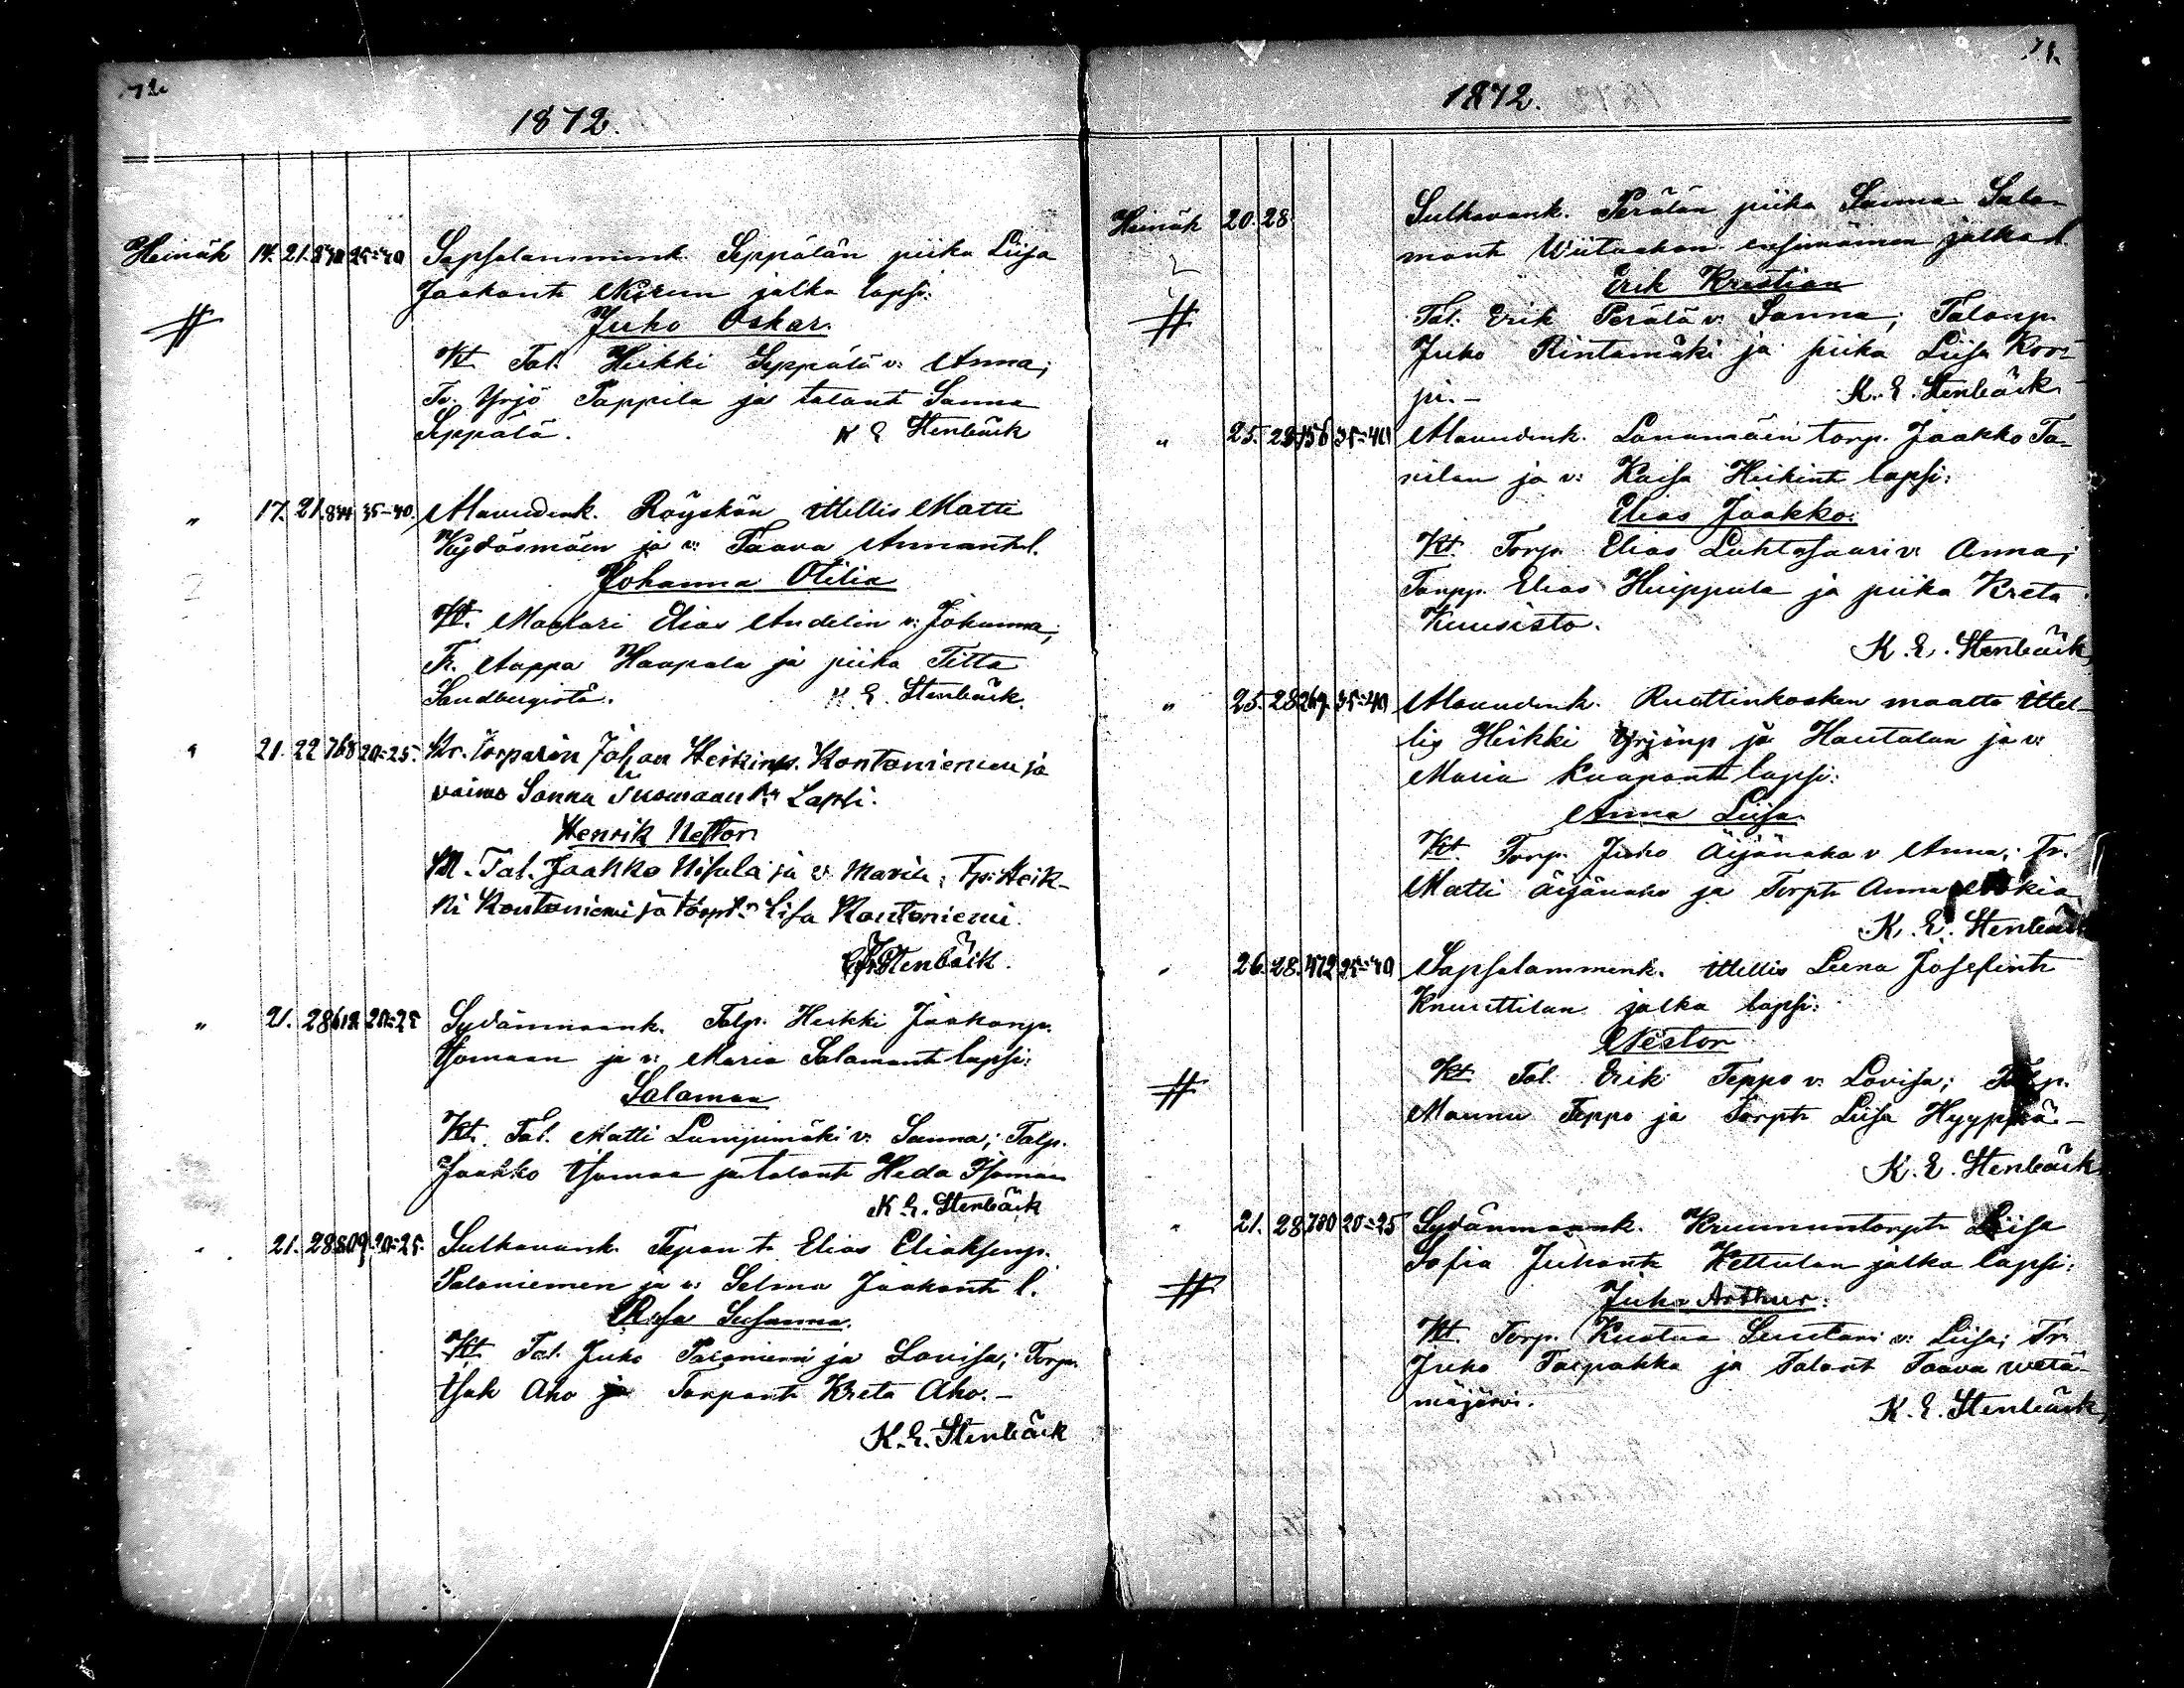 1872.
Heinäk 14. 21. 25-40 Sapsalammink. Seppälän piika Liisa
Jaakont jalka lapsi:
Juho Oskar.
Kt. Tal. Heikki Seppälä v: Anna;
Tr. Yrjö Pappila ja talont Sanna
Seppälä. K E Stenbäck
" 17. 21. 35-40. Maunuunk. Röyskön ittellis Matti
Kydösmäen ja v: Taava Annant l.
Johanna Otilia
Kt. Maalari Elias Andelin v: Johanna;
Tr. Aappa Haapala ja piika Titta
K. E. Stenbäck.
" 21. 22 768 20-25. Kr. torparin Johan Heikinp. Kontoniemen ja
vaimo Sanna Tuomaant. Lapsi.
Henrik Nestor.
Kt. Tal. Jaakko Nisula ja v. Maria; Tp: Heik-
ki Kontoniemi ja torpt. Lisa Kontoniemi.
Stenbäck.
" 21. 28 612 20-25 Sydänmaank. Talp. Heikki Jaakonp.
Isomaan ja v: Maria Salamont lapsi:
Salamon
Kt. Tal. Matti Lumpimäki v: Sanna; Talp.
Jaakko Isomaa ja talont Heda Isomaa
K. E. Stenbäck
" 21. 28 809 20-25. Sulkavank. Elias Eliaksenp.
Paloniemen ja v: Selma Jaakont l.
Rosa Susanna.
Kt. Tal. Juho Paloniemi ja Lovisa; Torp.
Isak Aho ja Torpant Kreta Aho.-
K. E. Stenbäck
1872.
Heinäk 20. 28. Sulkavank. Perälän piika Sanna Sala-
mont Wiitaahon ensimäinen jalka l.
Erik Kristian
Tal. Erik Perälä v: Sanna; Talonp.
Juho Rintamäki ja piika Liisa Kor-
pi.- K. E. Stenbäck
" 25. 28 156 35-40 Maunuunk. Lanamäen torp. Jaakko Ta-
nilan ja v: Kaisa Heikint lapsi:
Elias Jaakko.
Kt. Torp. Elias Luhtasaari v: Anna;
Torpp. Elias Huippula ja piika Kreta
Kuusisto.
K. E. Stenbäck
" 25. 28 269. 35-40 Maunuunk. Ruottinkosken maalta ittel-
lis Heikki Yrjönp ja Hautalan ja v:
Maria Kaapont lapsi:
Anna Liisa.
Kt. Torp. Juho Äijänaho v Anna; Tr.
Matti Äijänaho ja Torpt Anna
K. E. Stenbäck
" 26. 28. 472 35-40 Sapsalammink. ittellis Leena Josefint
Knuuttilan jalka lapsi:
Nestor
Kt Tal. Erik Teppo v: Lovisa; Talp.
Maunu Teppo ja Torpt Liisa Hyyppä.-
K. E. Stenbäck
" 21. 28 780 20-25 Sydänmaank. Kruununtorpt Liisa
Sofia Juhont Kettulan jalka lapsi:
Juho Arthur.
Kt. Torp. Kustaa Luutari v: Liisa; Tr
Juho Taipakka ja Talont Taava Wetä-
mäjärvi.
K. E. Stenbäck